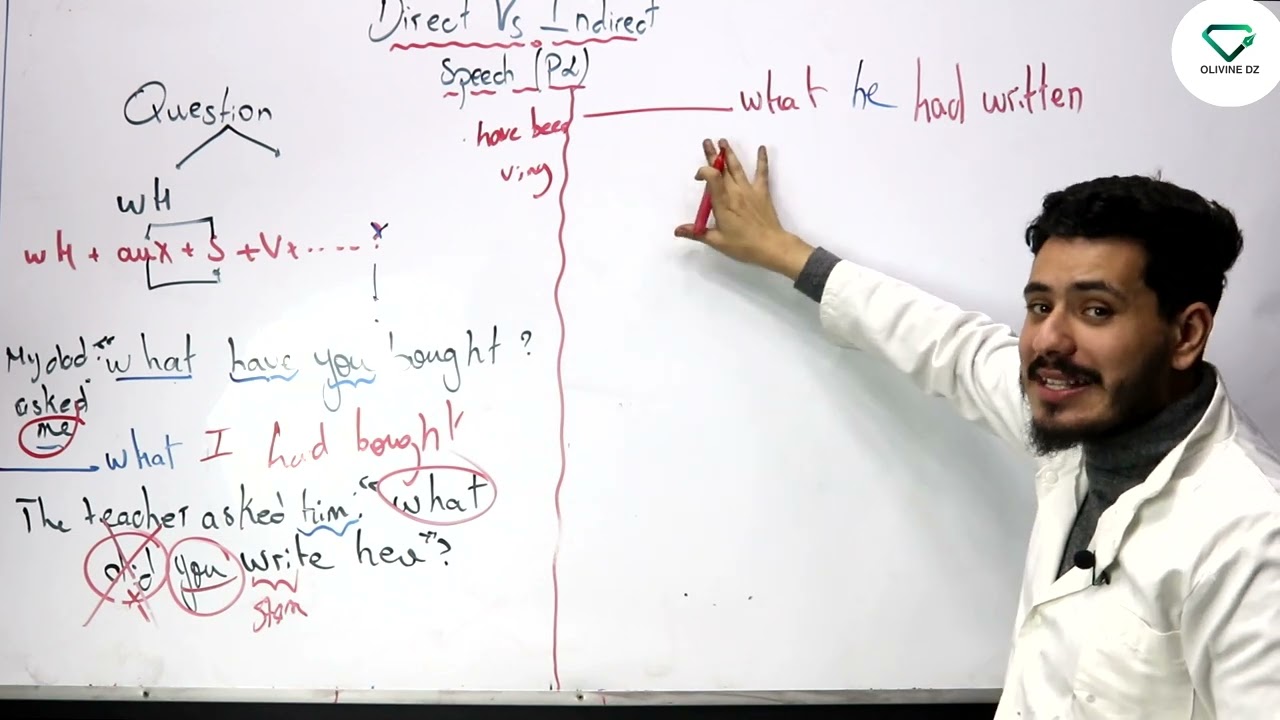 Direct Vs Indirect
Speech (P2)
OLIVINE DZ
Question
have been
Ving
what he had written
WH
WH + aux + S + V + ..... ?
My dad: "what have you bought ?
asked
me
what I had bought
The teacher asked him: "what
did you write here"?
stem